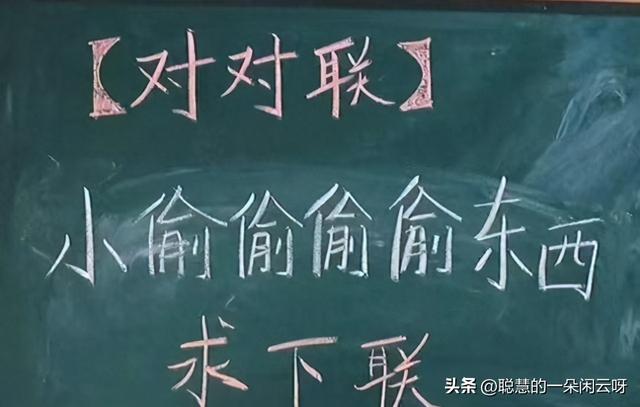 【对对联】
小偷偷偷偷东西
求下联
头条 @聪慧的一朵闲云呀